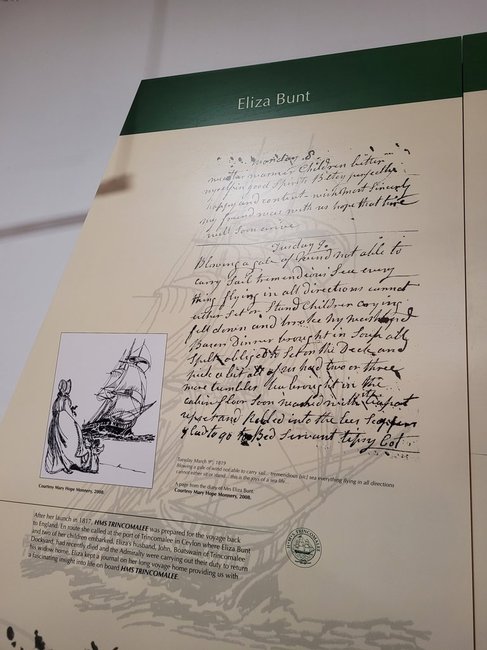 Eliza Bunt
Monday 8
weather warmer Children better
myself in good Spirits Betsy perfectly
happy and content wish most Sincerly
my friend was with us hope that time
will soon arrive
Tuesday 9
Blowing a gale of wind not able to
carry Sail tremendious Sea every
thing flying in all directions cannot
either Set or Stand Children crying
fell down and broke my
Bason Dinner brought in Soup all
Spilt obliged to Set on the Deck and
pick a bit all of us had two or three
more tumbles Tea brought in the
cabin floor soon washed with it
upset and rolled into the Lee
glad to go to Bed Servant tipsy
Courtesy Mary Hope Monnery, 2008.
Tuesday March 9th, 1819
Blowing a gale of wind not able to carry sail... tremendious [sic] sea everything flying in all directions
cannot either sit or stand... this is the joys of a sea life
A page from the diary of Mrs Eliza Bunt.
Courtesy Mary Hope Monnery, 2008.
After her launch in 1817, HMS TRINCOMALEE was prepared for the voyage back
to England. En route she called at the port of Trincomalee in Ceylon where Eliza Bunt
and two of her children embarked. Eliza's husband, John, Boatswain of Trincomalee
Dockyard, had recently died and the Admiralty were carrying out their duty to return
his widow home. Eliza kept a journal on her long voyage home providing us with
a fascinating insight into life on board HMS TRINCOMALEE.
HMS TRINCOMALEE